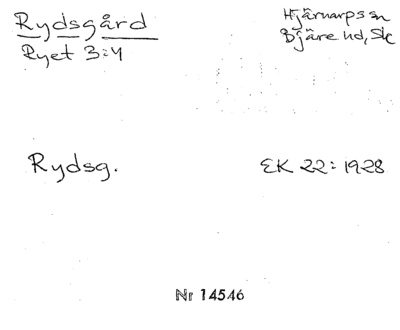 Rydsgård
Ryet 3:4
Hjärnarps sn
Bjäre hd, Sk
Rydsg.
EK 22:1928
Nr 14546